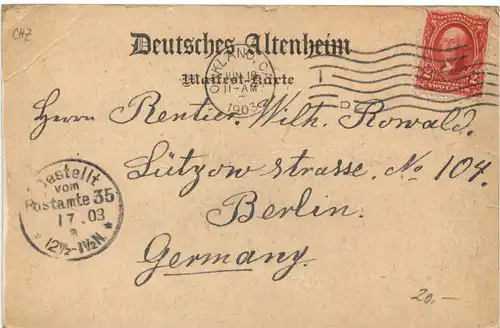 CHZ
Deutsches Altenheim
Maifest-Karte
OAKLAND, C
JUN 18
11-AM
1903
D
Herrn Rentier. Wilh. Rowald.
Lützowstrasse. No 104.
Berlin.
Germany.
Bestellt
vom
Postamte 35
17.03
12½-1½N
20.-